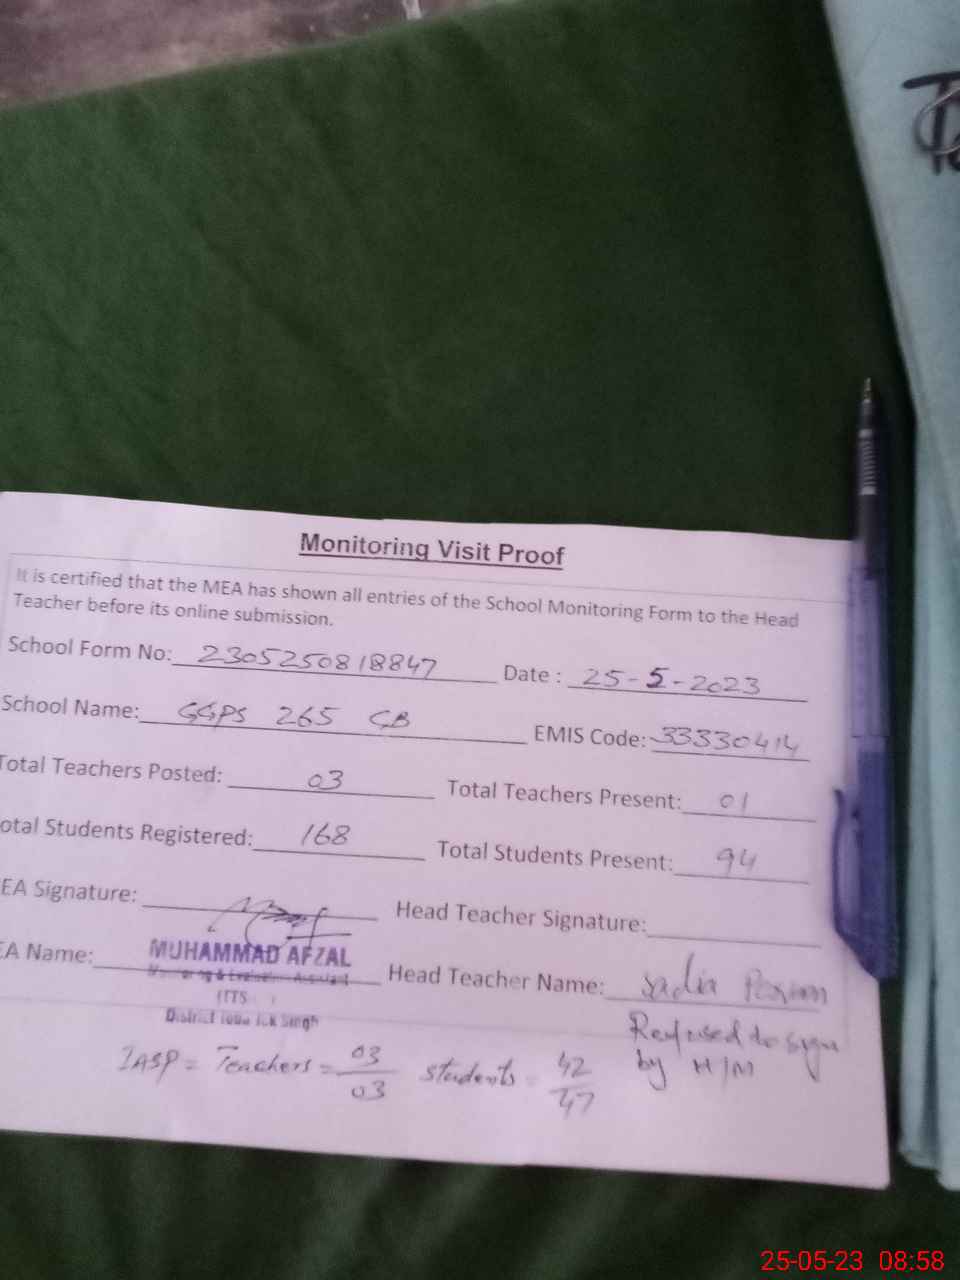 Monitoring Visit Proof
It is certified that the MEA has shown all entries of the School Monitoring Form to the Head
Teacher before its online submission.
School Form No: 2305250818847 Date : 25-5-2023
School Name: GGPS 265 GB EMIS Code: 33330414
Total Teachers Posted: 03 Total Teachers Present: 01
otal Students Registered: 168 Total Students Present: 94
EA Signature: Head Teacher Signature:
EA Name: MUHAMMAD AFZAL Head Teacher Name: Sadia
Monitoring & Evaluation Assistant
(TTS
District Toba Tek Singh
Refused to sign
by H/M
IASP = Teachers = 03/03 students = 42/47
25-05-23 08:58